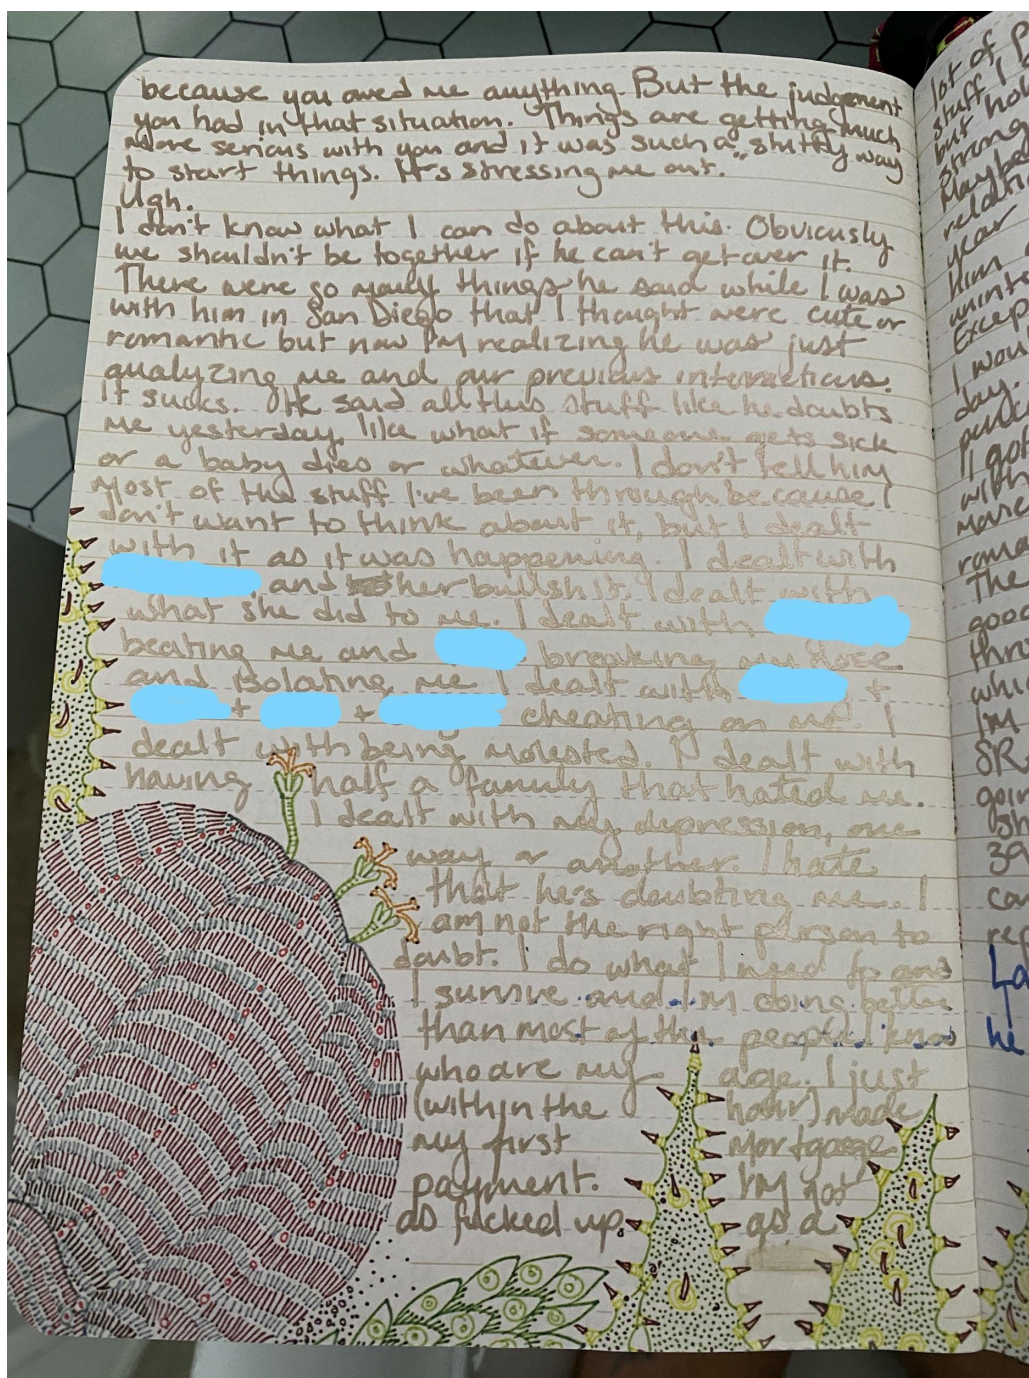 because you owed me anything. But the judgement
you had in that situation. Things are getting much
more serious with you and it was such a "shitty way
to start things. It's stressing me out.
Ugh.
I don't know what I can do about this. Obviously
we shouldn't be together if he can't get over it.
There were so many things he said while I was
with him in San Diego that I thought were cute or
romantic but now I'm realizing he was just
analyzing me and our previous interactions.
It sucks. He said all this stuff like he doubts
me yesterday, like what if someone gets sick
or a baby dies or whatever. I don't tell him
most of the stuff I've been through because I
don't want to think about it, but I dealt
with it as it was happening. I dealt with
and her bullshit. I dealt with
what she did to me. I dealt with
beating me and breaking my nose
and isolating me. I dealt with +
+ + cheating on me. I
dealt with being molested. I dealt with
having half a family that hated me.
I dealt with my depression, one
way or another. I hate
that he's doubting me. I
am not the right person to
doubt. I do what I need to and
I survive and I'm doing better
than most of the people I know
who are my age. I just
(within the hour) made
my first mortgage
payment. I'm not
as fucked up as a
lot of
stuff I
but
Maybe
year
him
Excep
I wou
day.
I
with
more
roma
The
good
thr
whi
I'm
goin
39
he